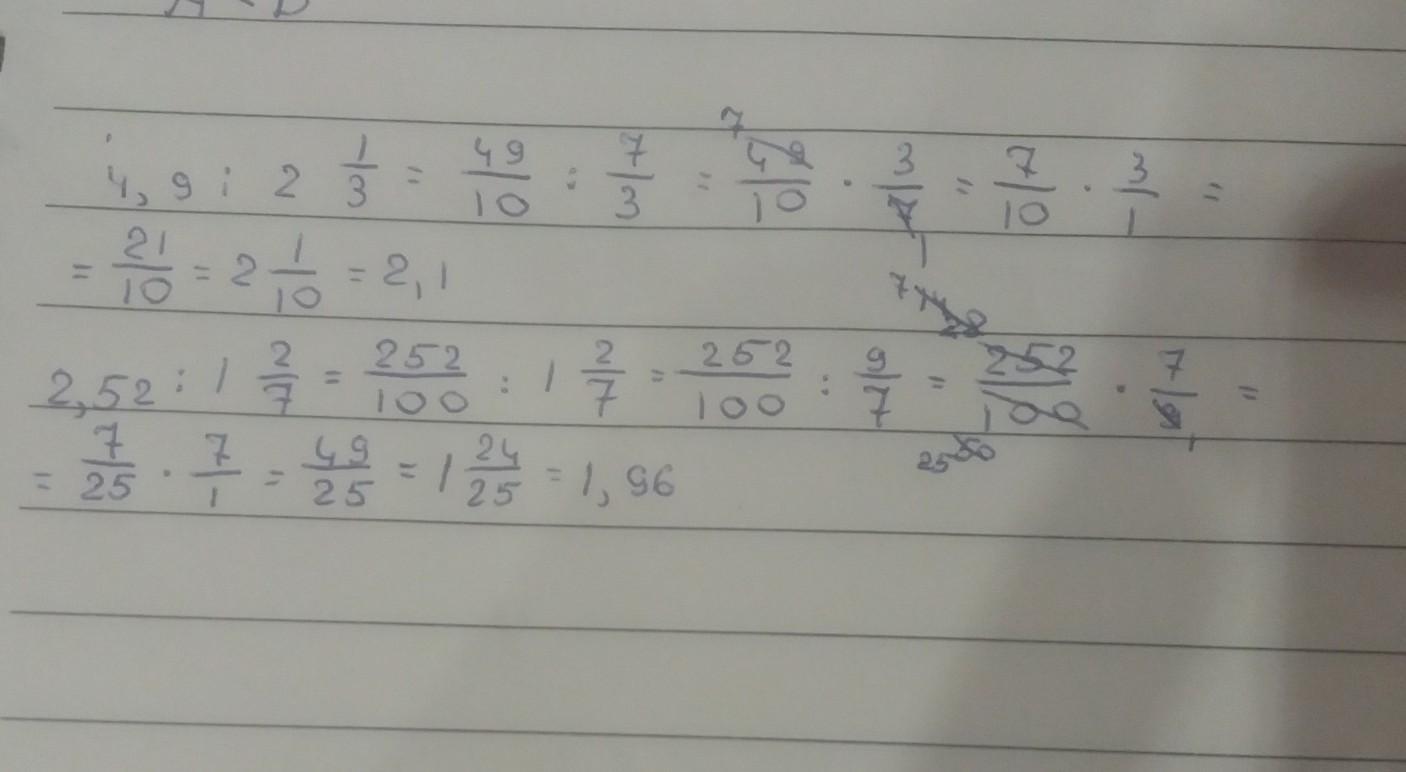 4,9 : 2 1/3 = 49/10 : 7/3 = 49/10 · 3/7 = 7/10 · 3/1 =
= 21/10 = 2 1/10 = 2,1
2,52 : 1 2/7 = 252/100 : 1 2/7 = 252/100 : 9/7 = 252/100 · 7/9 =
= 7/25 · 7/1 = 49/25 = 1 24/25 = 1,96